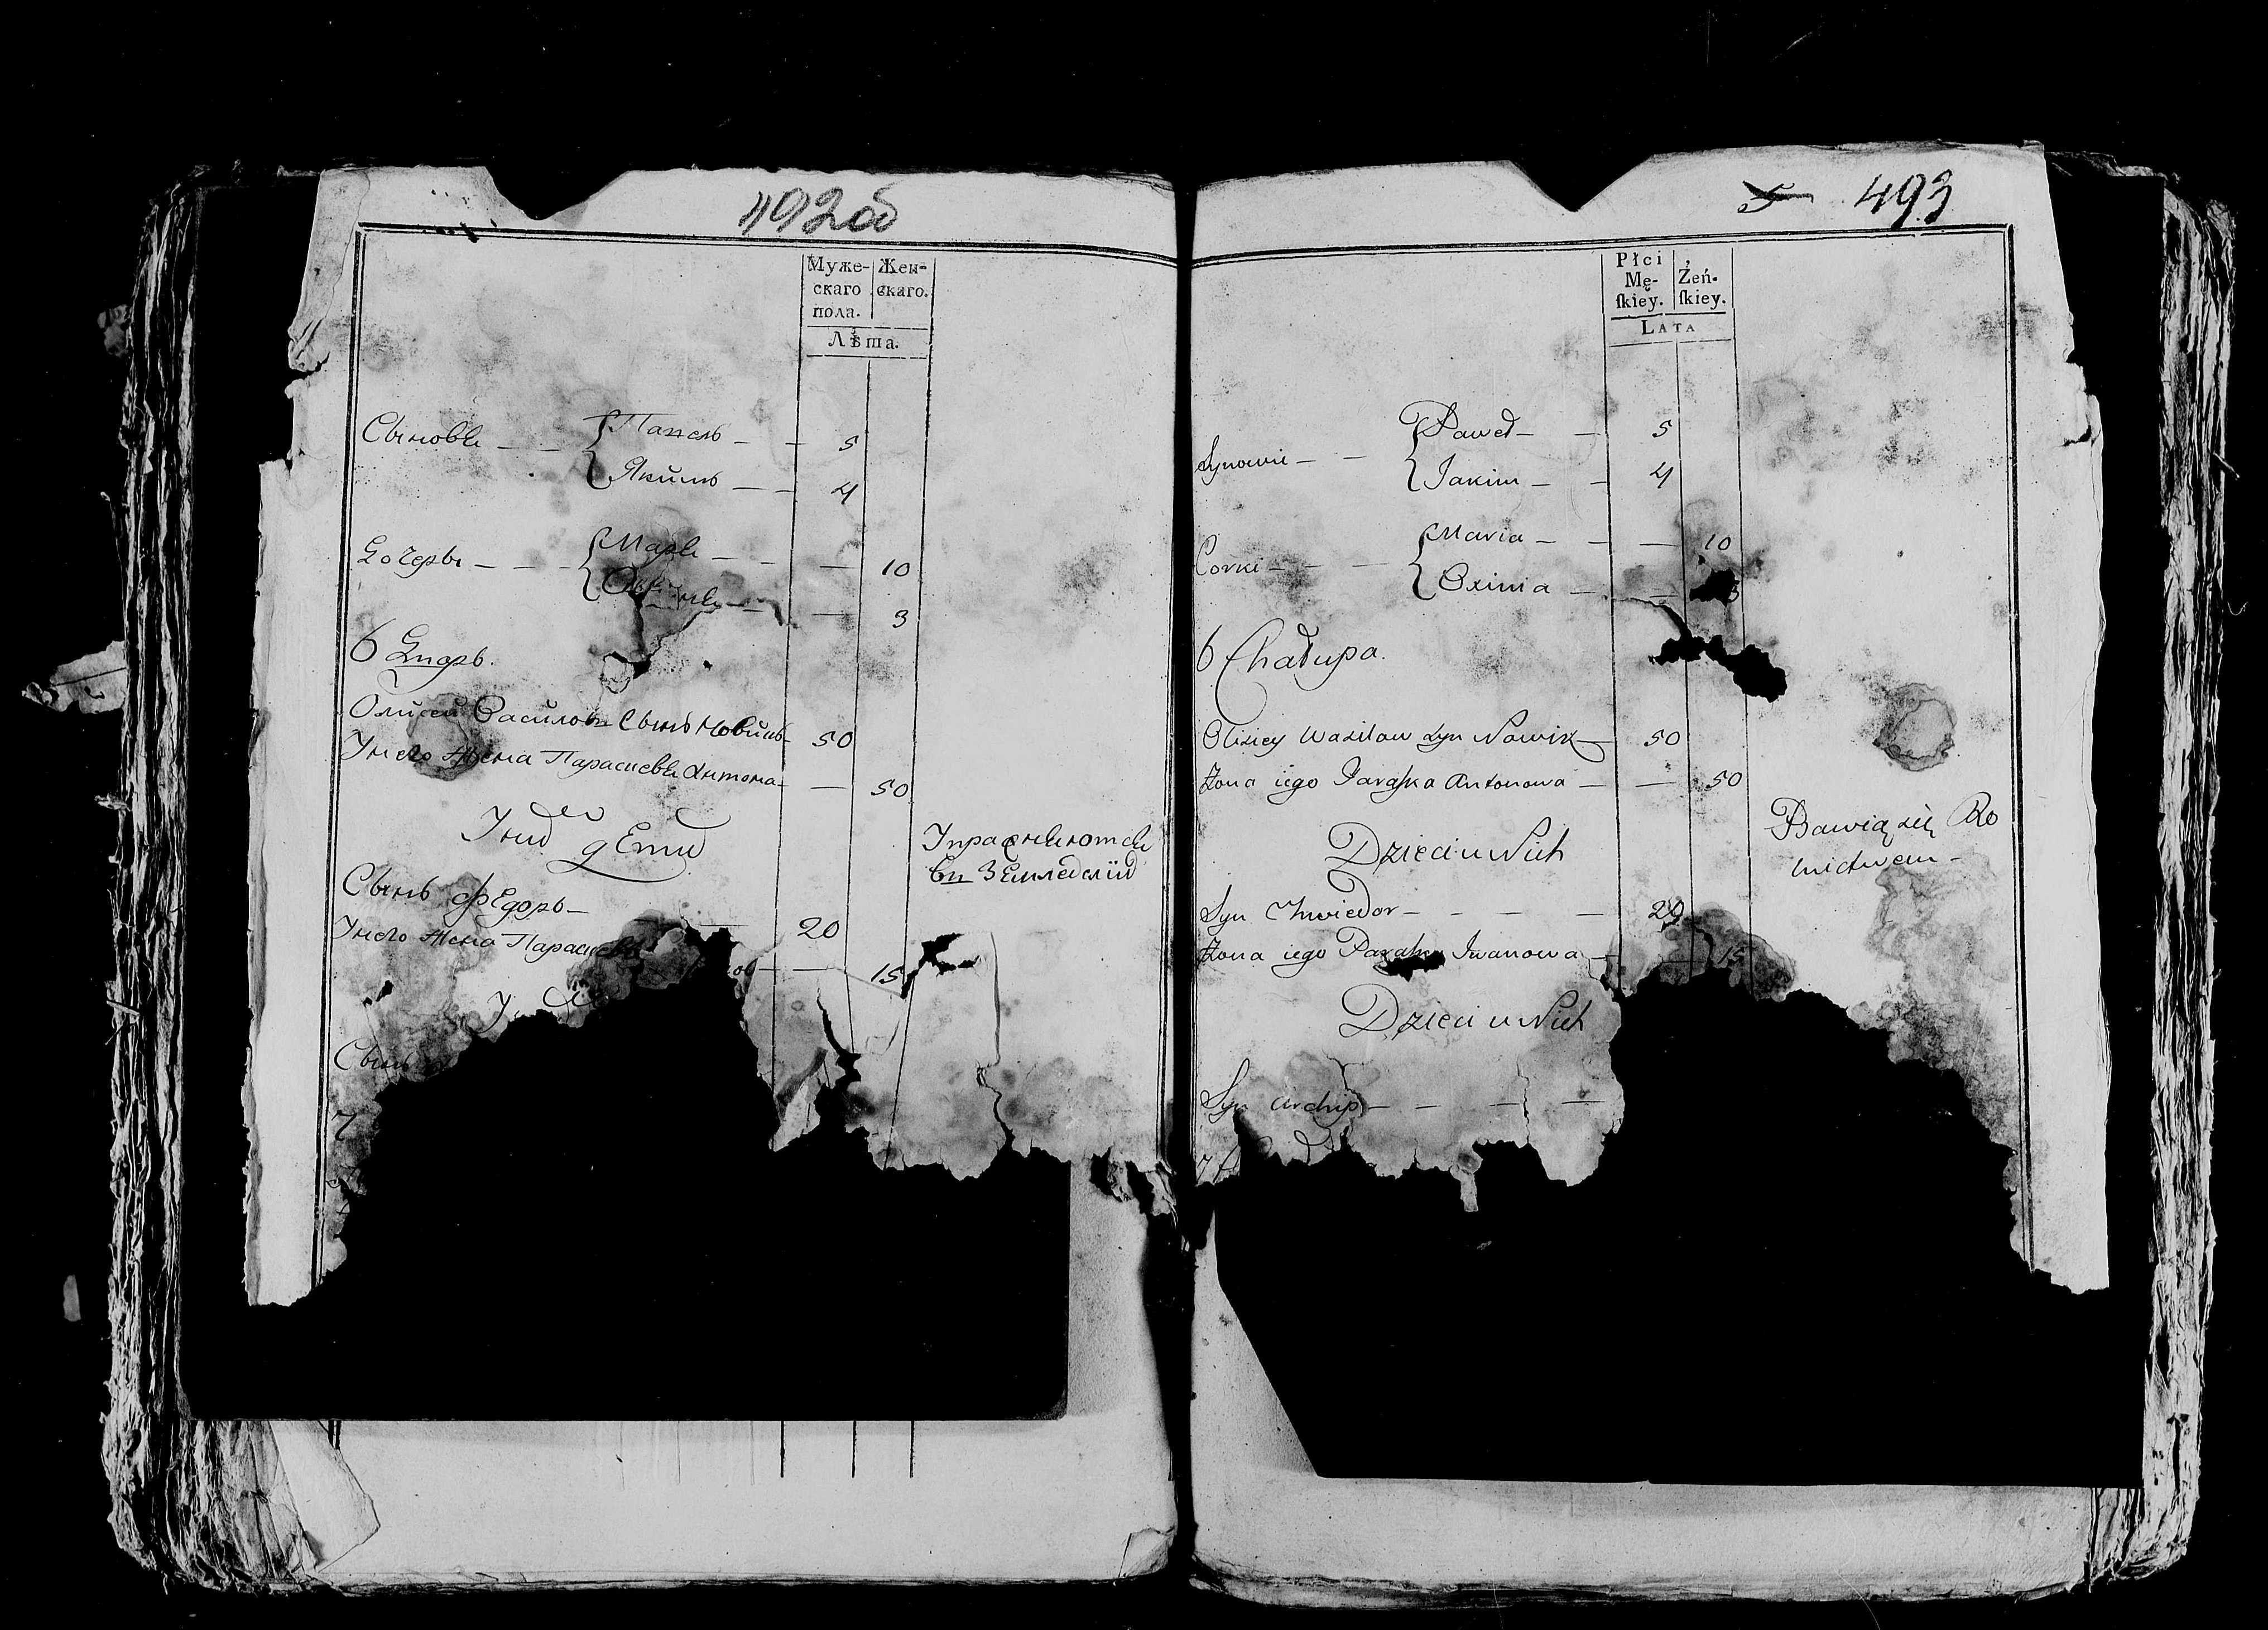 492об
Муже- Жен-
скаго скаго.
пола.
Лѣта.
Сыновья { Павелъ 5
Якимъ 4
Дочеры { Марья 10
3
6 Дворъ.
Олисей Василовъ Сынъ Новикъ 50
Унего Жена Парасковья Антона 50
Уних дети
Упражняются
въ Земледелии
Сынъ Федоръ 20
Унего Жена 15
У
Сынъ
7
5 493
Płci Żeń-
Mę- ſkiey.
ſkiey.
LATA
Synowie { Paweł 5
Jakim 4
Corki { Maria 10
Oxinia 3
6 Chałupa.
Olisiey Wasilow Syn Nowik 50
Żona iego Paraſka Antonowa 50
Dzieci u Nich
Bawią się Ro
lnictwem
Syn Chwiedor 20
Żona iego Iwanowa 15
Dzieci u Nich
Syn Archip
7